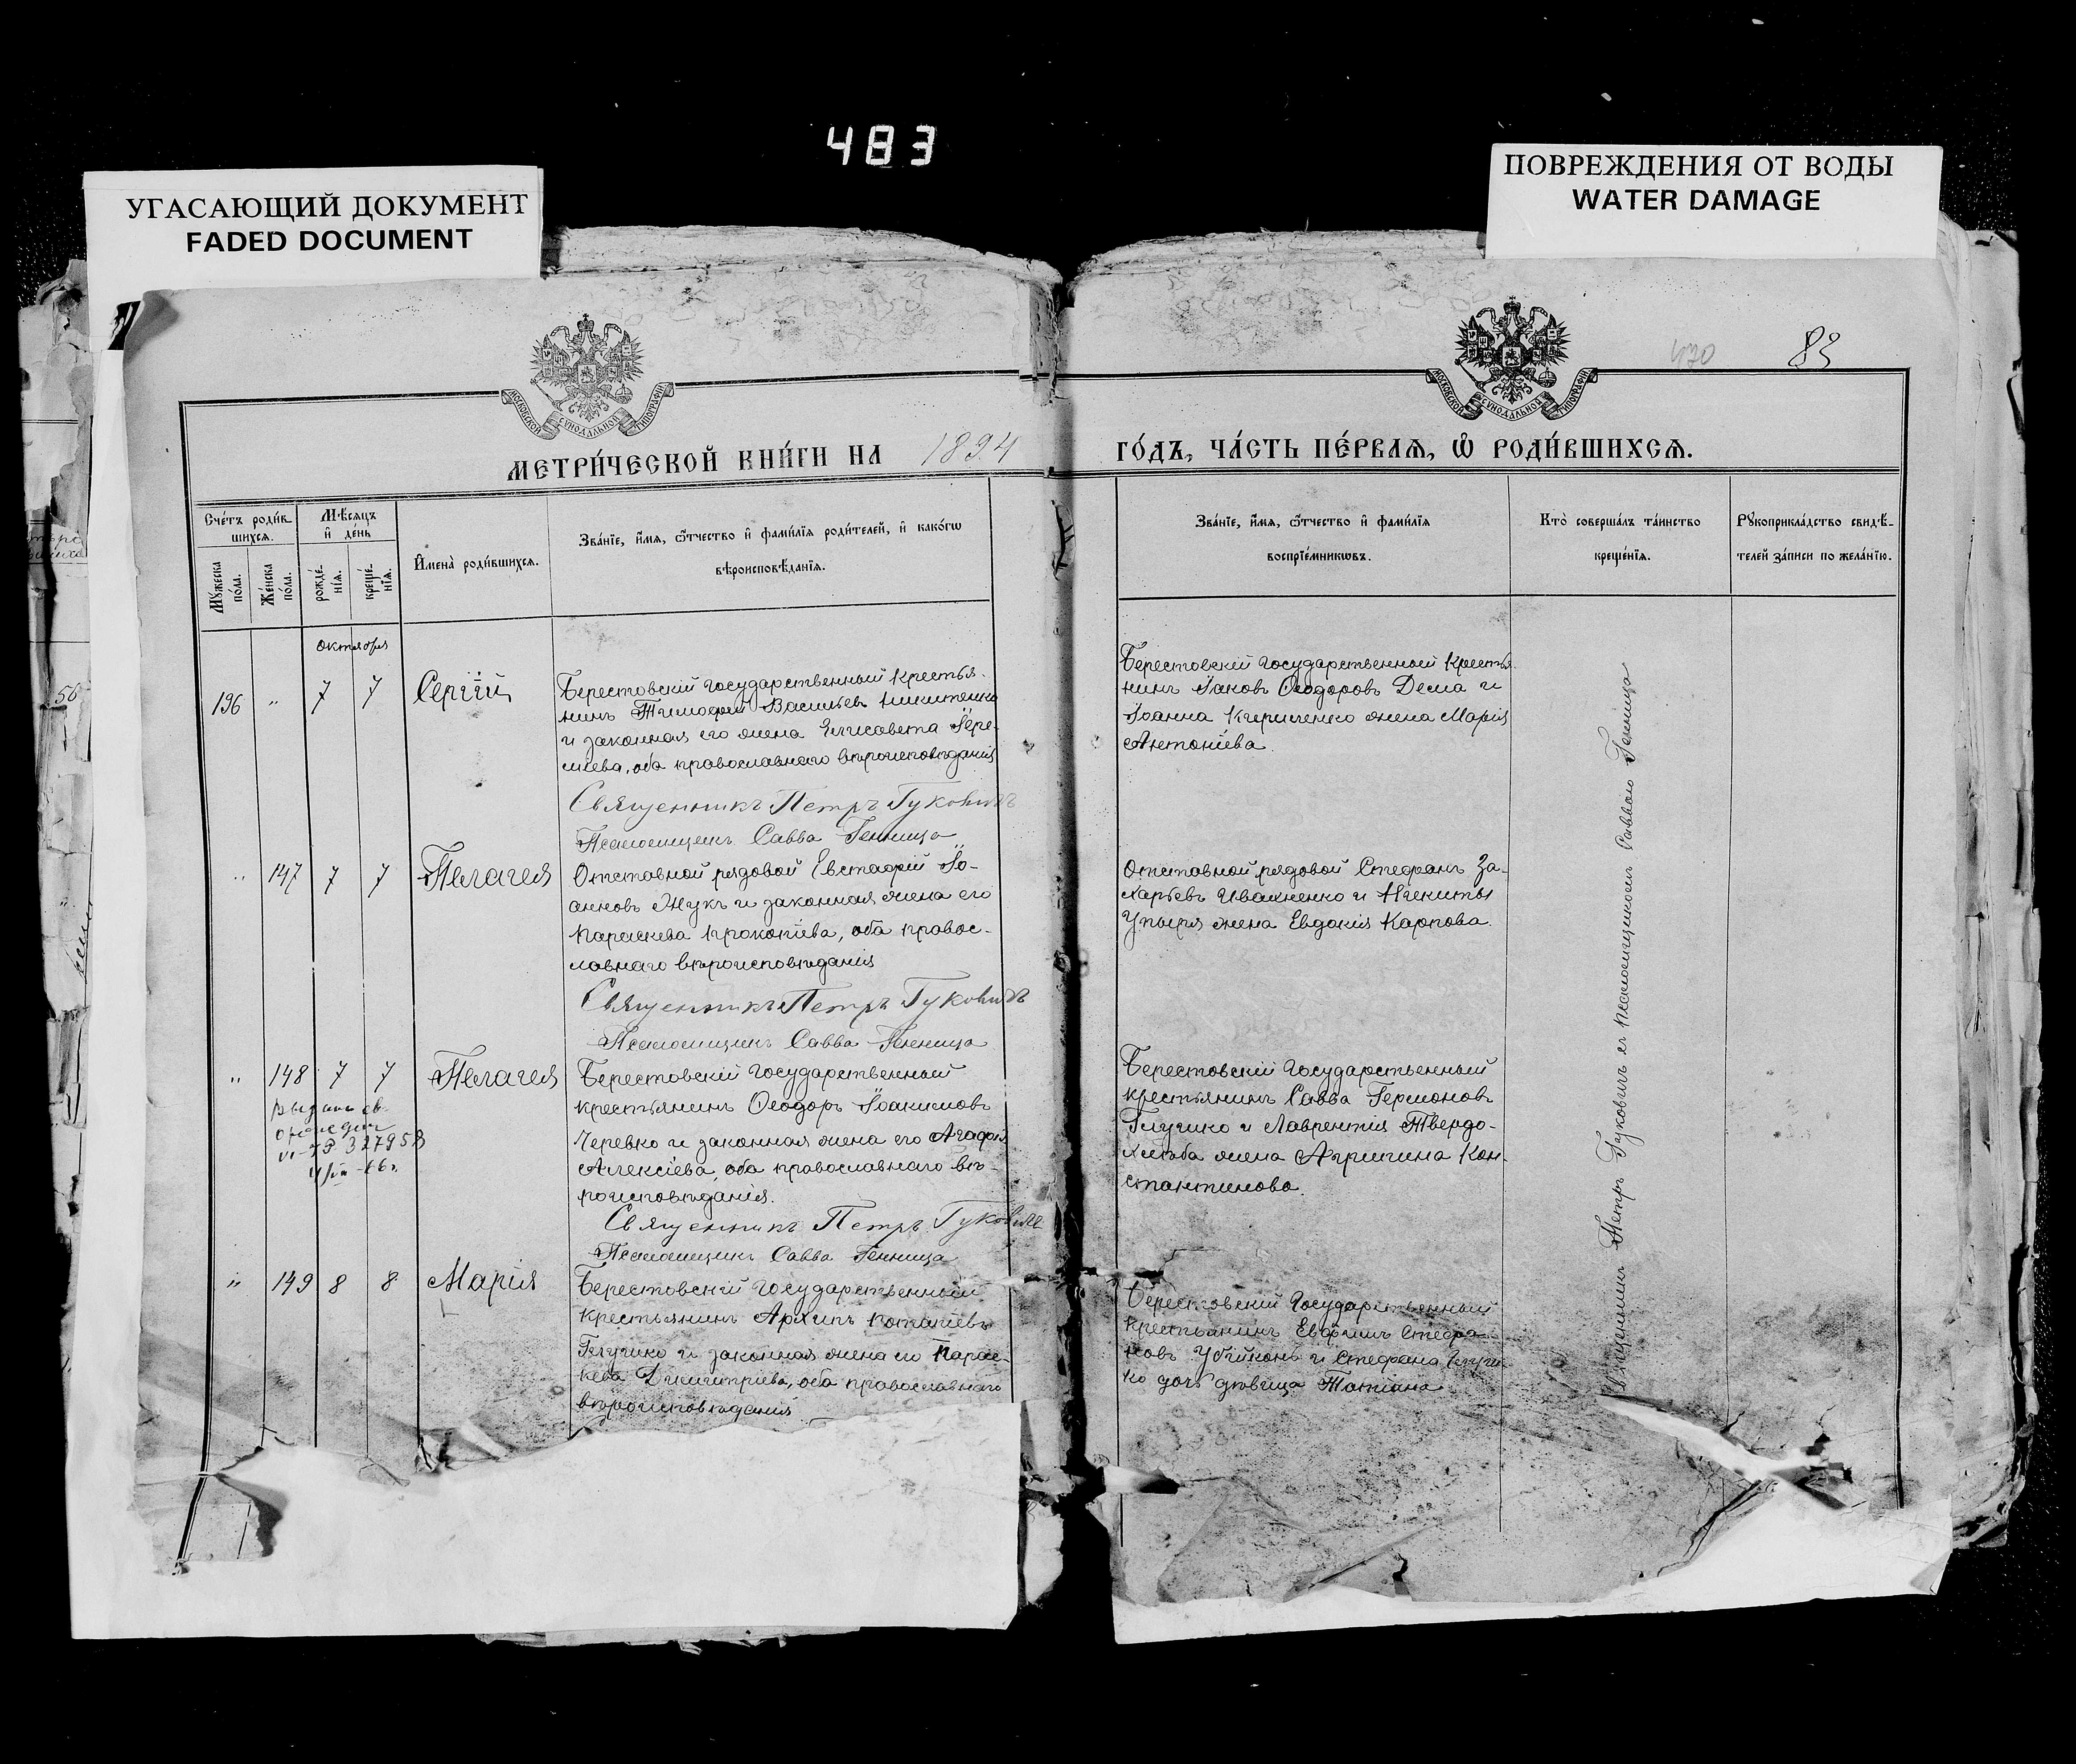 483
УГАСАЮЩИЙ ДОКУМЕНТ
FADED DOCUMENT
ПОВРЕЖДЕНИЯ ОТ ВОДЫ
WATER DAMAGE
470 83
МОСКОВСКОЙ СѴНОДАЛЬНОЙ ТИПОГРАФІИ
МОСКОВСКОЙ СѴНОДАЛЬНОЙ ТИПОГРАФІИ
МЕТРИ́ЧЕСКОЙ КНИ́ГИ НА 1894
ГО́ДЪ, ЧА́СТЬ ПЕ́РВАѦ, Ѽ РОДИ́ВШИХСѦ.
Сче́тъ роди́в
шихсѧ.
Мѣ́сѧцъ
и҆ де́нь
Мꙋ́жеска
по́ла.
Же́нска
по́ла.
рожде́
нїѧ.
креще́
нїѧ.
И҆мена̀ роди́вшихсѧ.
Зва́нїе, и҆́мѧ, ѻ҆́тчество и҆ фами́лїѧ роди́телей, и҆ како́гѡ
вѣроисповѣ́данїѧ.
Зва́нїе, и҆́мѧ, ѻ҆́тчество и҆ фами́лїѧ
воспрїе́мникѡвъ.
Кто̀ соверша́лъ та́инство
креще́нїѧ.
Рꙋкоприкла́дство свидѣ́-
телей за́писи по жела́нїю.
Октября
196 " 7 7 Сергій
Берестовскій государственный крестья-
нинъ Тимофей Васильевъ Никитенко
и законная его жена Елисавета Іере-
міева, оба православнаго вѣроисповѣданія
Священникъ Петръ Гуковичъ
Псаломщикъ Савва Генница
Берестовскій государственный крестья
нинъ Іаковъ Ѳеодоровъ Дема и
Іоанна Кириченко жена Марія
Антоніева.
" 147 7 7 Пелагея
Отставной рядовой Евстафій Іо-
анновъ Жукъ и законная жена его
Параскева Прокопіева, оба правос-
лавнаго вѣроисповѣданія
Священникъ Петръ Гуковичъ
Псаломщикъ Савва Генница
Отставной рядовой Стефанъ За-
харьевъ Ивахненко и Никиты
Упыря жена Евдокія Карпова.
" 148 7 7 Пелагея
Берестовскій государственный
крестьянинъ Ѳеодоръ Іоакимовъ
Черевко и законная жена его Агафія
Алексіева, оба православнаго вѣ-
роисповѣданія.
Священникъ Петръ Гуковичъ
Псаломщикъ Савва Генница
Берестовскій государственный
крестьянинъ Савва Гермоновъ
Глушко и Лаврентія Твердо-
хлѣба жена Агрипина Кон-
стантинова.
" 149 8 8 Марія
Берестовскій государственный
крестьянинъ Архипъ Потапіевъ
Глушко и законная жена его Парас-
кева Димитріева, оба православнаго
вѣроисповѣданія
Берестовскій государственный
крестьянинъ Евфимъ Стефа-
новъ и Стефана Глуш-
ко дочь дѣвица Татіана
Священникъ Петръ Гуковичъ съ псаломщикомъ Саввою Генница